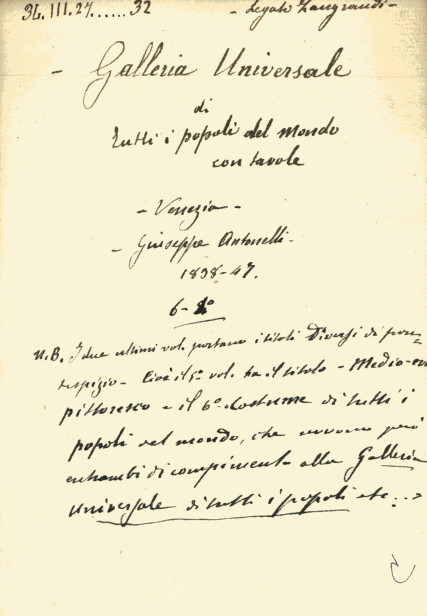 34.III.27......32 - Legato Zangrandi -
- Galleria Universale
di
tutti i popoli del mondo
con tavole
- Venezia -
- Giuseppe Antonelli -
1838-47.
6-8°
N.B. I due ultimi vol. portano i titoli Diversi di fron=
tespizio - Cioè il 5° vol. ha il titolo - Medio-evo
pittoresco - il 6° Costume di tutti i
popoli del mondo, che servono però
entrambi di compimento alla Galleria
Universale di tutti i popoli etc...